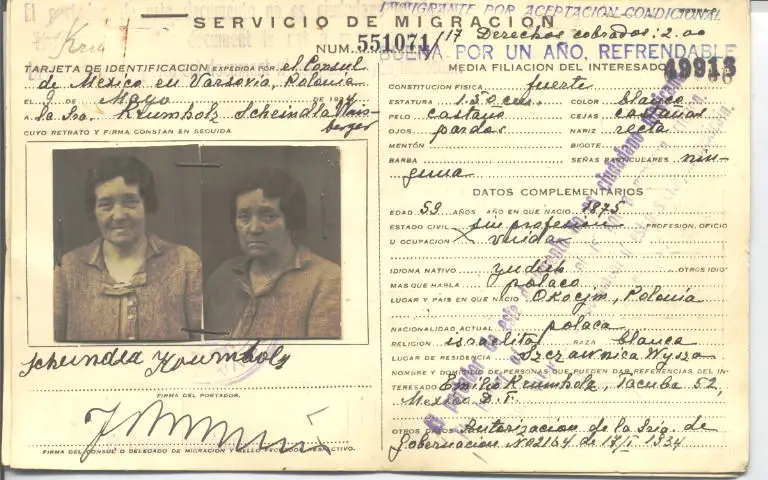 INMIGRANTE POR ACEPTACION CONDICIONAL
SERVICIO DE MIGRACION
NUM. 551071/17 Derechos cobrados: 2.00
BUENA POR UN AÑO, REFRENDABLE
49913
TARJETA DE IDENTIFICACION EXPEDIDA POR el Consul
de Mexico en Varsovia, Polonia
el 9 DE Mayo DE 1934
A la Sra. Krumholz Scheindla
berger
CUYO RETRATO Y FIRMA CONSTAN EN SEGUIDA
Scheindla Krumholz
FIRMA DEL PORTADOR.
FIRMA DEL CONSUL O DELEGADO DE MIGRACION Y SELLO RESPECTIVO.
MEDIA FILIACION DEL INTERESADO
CONSTITUCION FISICA fuerte
ESTATURA 1.50 cm. COLOR blanco
PELO castaño CEJAS castañas
OJOS pardos NARIZ recta
MENTÓN BIGOTE
BARBA SEÑAS PARTICULARES nin-
guna
DATOS COMPLEMENTARIOS
EDAD 59 AÑOS AÑO EN QUE NACIO 1875
ESTADO CIVIL sin profesion PROFESION, OFICIO
U OCUPACION viuda
IDIOMA NATIVO yudish OTROS IDIO-
MAS QUE HABLA polaco
LUGAR Y PAIS EN QUE NACIO Okocim, Polonia
NACIONALIDAD ACTUAL polaca
RELIGION israelita RAZA blanca
LUGAR DE RESIDENCIA Szczawnica Wyzsza
NOMBRE Y DOMICILIO DE PERSONAS QUE PUEDEN DAR REFERENCIAS DEL IN-
TERESADO Emilio Krumholz, Tacuba 52,
Mexico D. F.
OTROS DATOS Autorizacion de la Sria. de
Gobernacion No 2164 de 17/II 1934